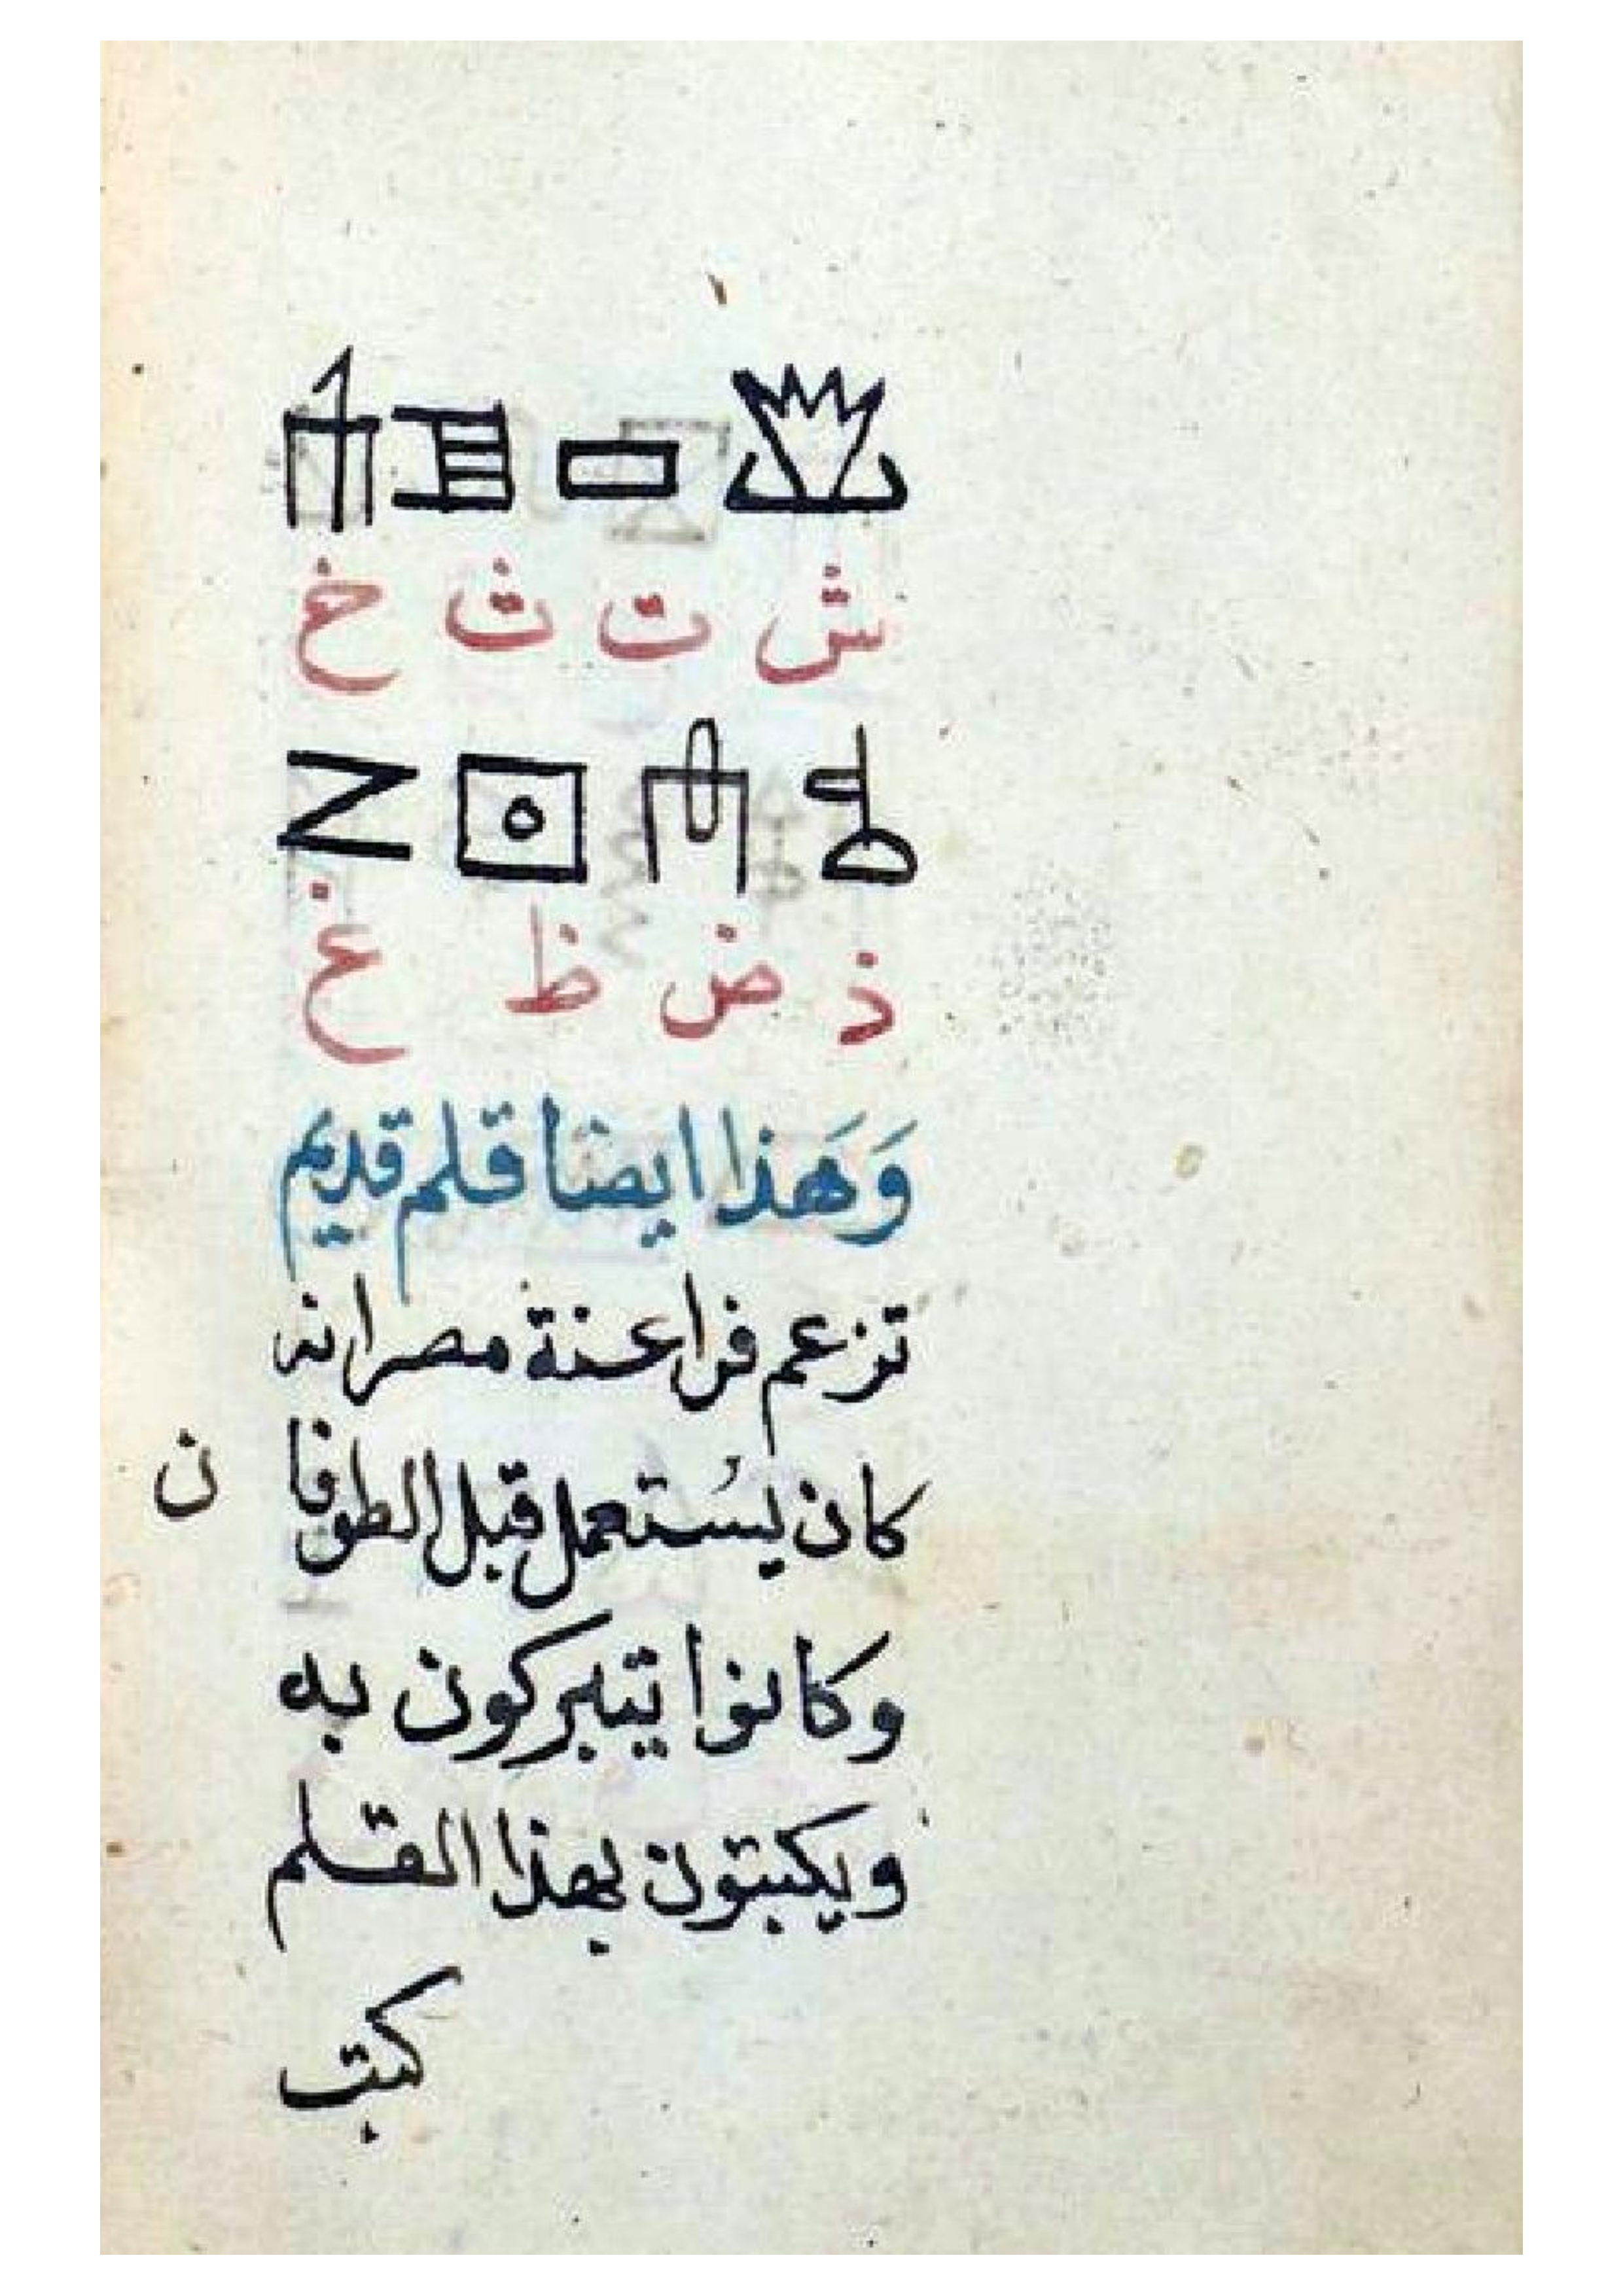 ش ت ث خ
ذ ض ظ غ
وَهَذا ايضا قلم قديم
تزعم فراعنة مصر انه
كان يُستعمل قبل الطوفا ن
وكانوا يتبركون به
ويكتبون بهذا القلم
كتب